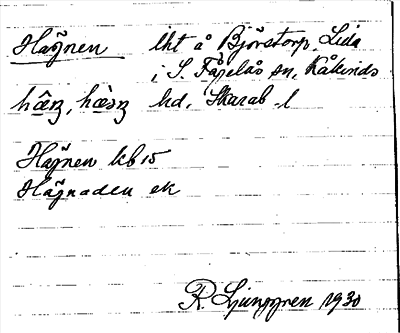 Hagnen lht å Björstorp, Lida
i S. Fågelås sn, Kåkinds
hd. Skarab. l
Hagnen kb 15
Hagnaden ek
R. Ljunggren 1930